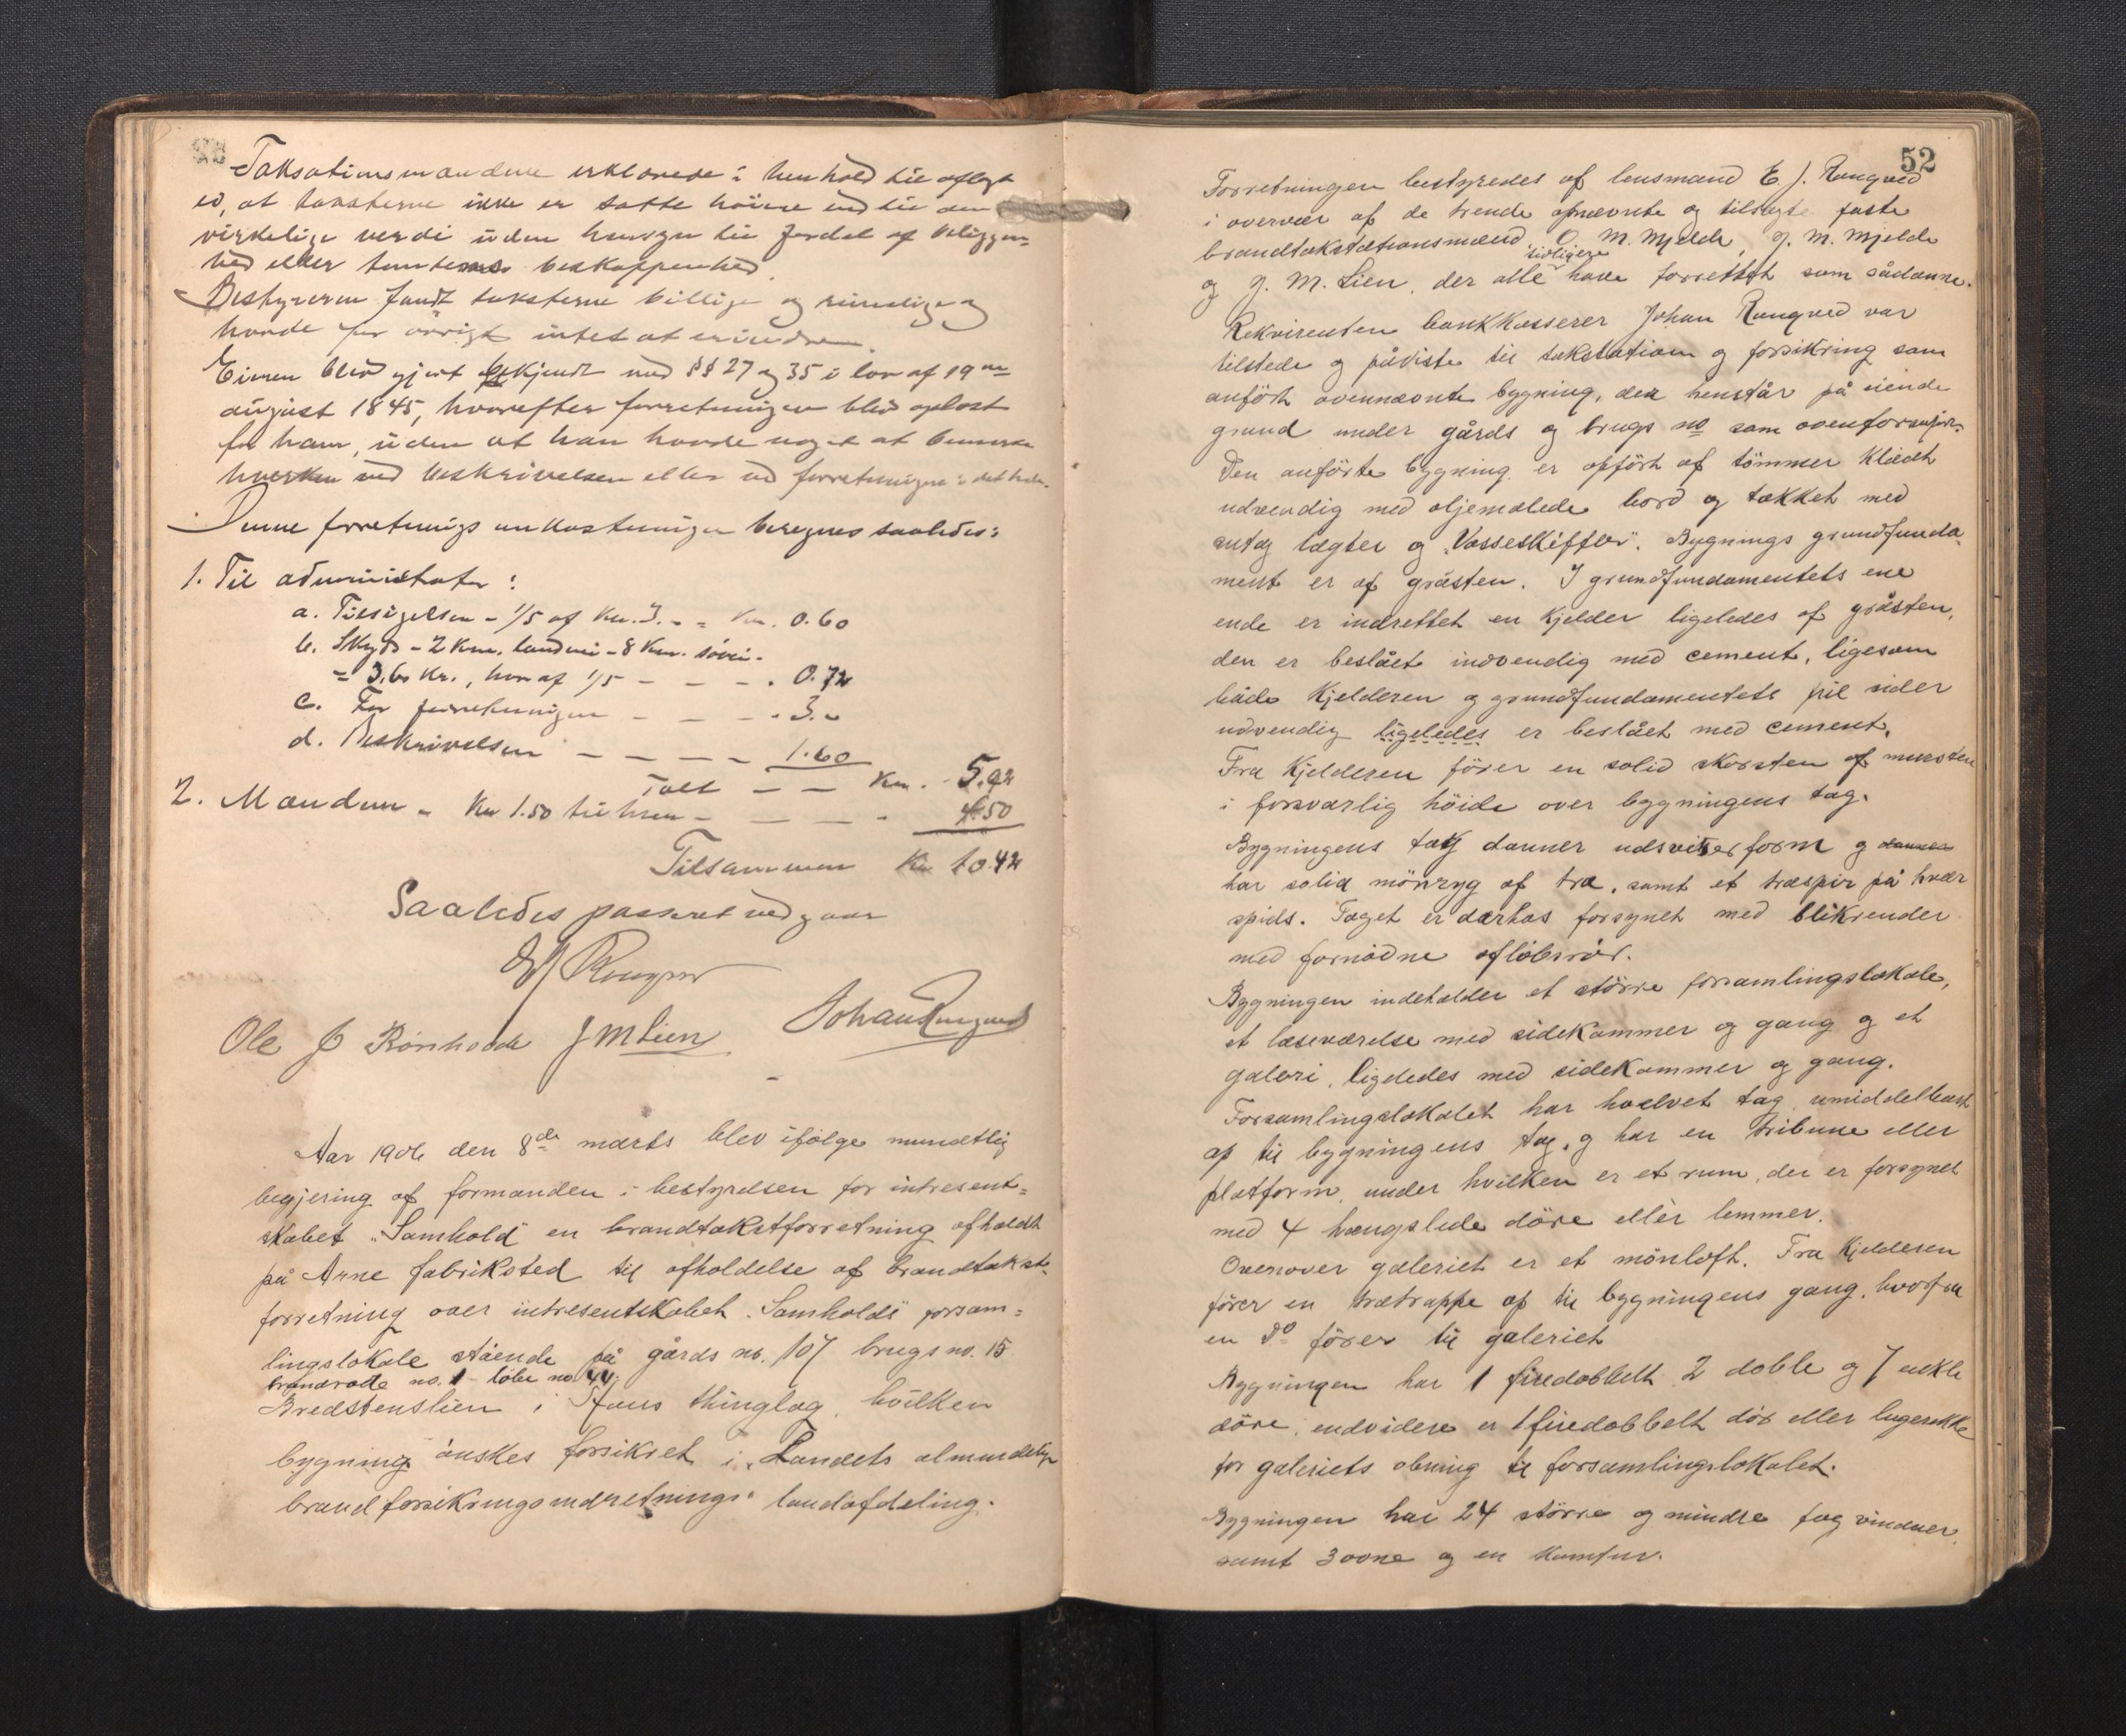 Taksationsmændene erklærede i henhold til aflagt
ed, at taksterne ikke er satte høiere end til den
virkelige verdi uden hensyn til fordel af beliggen-
hed eller tomtens beskaffenhed.
Bestyreren fandt taksterne billige og rimelige og
havde for øvrigt intet at erindre.
Eieren blev gjort bekjendt med §§ 27 og 35 i lov af 19de
august 1845, hvorefter forretningen blev oplæst
for ham, uden at han havde noget at bemerke
hverken ved beskrivelsen eller ved forretningen i det hele.
Denne forretnings omkostninger beregnes saaledes:
1. Til administrator:
a. Tilsigelsen - 1/5 af Kr. 3. - - Kr. 0.60
b. Skyds - 2 Km. landvei - 8 Km. søvei -
= 3.60 Kr., hvoraf 1/5 - - - . 0.72
c. For forretningen - - - . 3.-
d. Beskrivelsen - - - - 1.60
Talt - - Kr. 5.92
2. Mændene - Kr 1.50 til hver - - - - 4.50
Tilsammen Kr 10.42
Saaledes passeret vedgaar
E J Rongved
Ole J Rønhovde J M Lien Johan Rongved
Aar 1906 den 8de marts blev ifølge mundtlig
begjering af formanden i bestyrelsen for intresent-
skabet "Samhold" en brandtakstforretning afholdt
på Arne fabriksted til afholdelse af brandtakst-
forretning over intresentskabet "Samholds" forsam-
lingslokale stående på gårds no. 107 brugs no. 15
brandrode no. 1 - løbe no 44
Bredstenslien i Haus thinglag, hvilken
bygning ønskes forsikret i "Landets almindelige
brandforsikringsindretnings" landafdeling.
52
Forretningen bestyredes af lensmand E. J. Rongved
i overvær af de trende opnævnte og tilsagte faste
brandtakstationsmænd, O. M. Mjelde, J. M. Mjelde
tidligere
og J. M. Lien, der alle have forrettet som sådanne.
Rekvirenten bankkasserer Johan Rongved var
tilstede og påviste til takstation og forsikring som
anført ovennævnte bygning, der henstår på eiende
grund under gårds og brugs no som ovenforanført.
Den anførte bygning er opført af tømmer klædt
udvendig med oljemalede bord og tækket med
sutag lægter og "Vosseskiffer". Bygnings grundfunda-
ment er af gråsten. I grundfundamentets ene
ende er indrettet en kjelder ligeledes af gråsten,
den er beslået indvendig med cement, ligesom
både kjelderen og grundfundamentets frie sider
udvendig ligeledes er beslået med cement.
Fra kjelderen fører en solid skorsten af mursten
i forsvarlig høide over bygningens tag.
Bygningens tag danner udsveitserform og danner
har solid mønryg af træ, samt et træspir på hver
spids. Taget er derhos forsynet med blikrender
med fornødne afløbsrør.
Bygningen indeholder et større forsamlingslokale,
et læseværelse med sidekammer og gang og et
galeri, ligeledes med sidekammer og gang.
Forsamlingslokalet har hvelvet tag umiddelbart
op til bygningens tag, og har en tribune eller
platform, under hvilken er et rum, der er forsynet
med 4 hængslede døre eller lemmer.
Ovenover galeriet er et mønloft. Fra kjelderen
fører en trætrappe op til bygningens gang, hvorfra
en do fører til galeriet
Bygningen har 1 firedobbelt 2 doble og 7 enkle
døre, endvidere er 1 firedobbelt dør eller lugerække
for galeriets åbning til forsamlingslokalet.
Bygningen har 24 større og mindre fag vinduer
samt 3 ovne og en komfur.